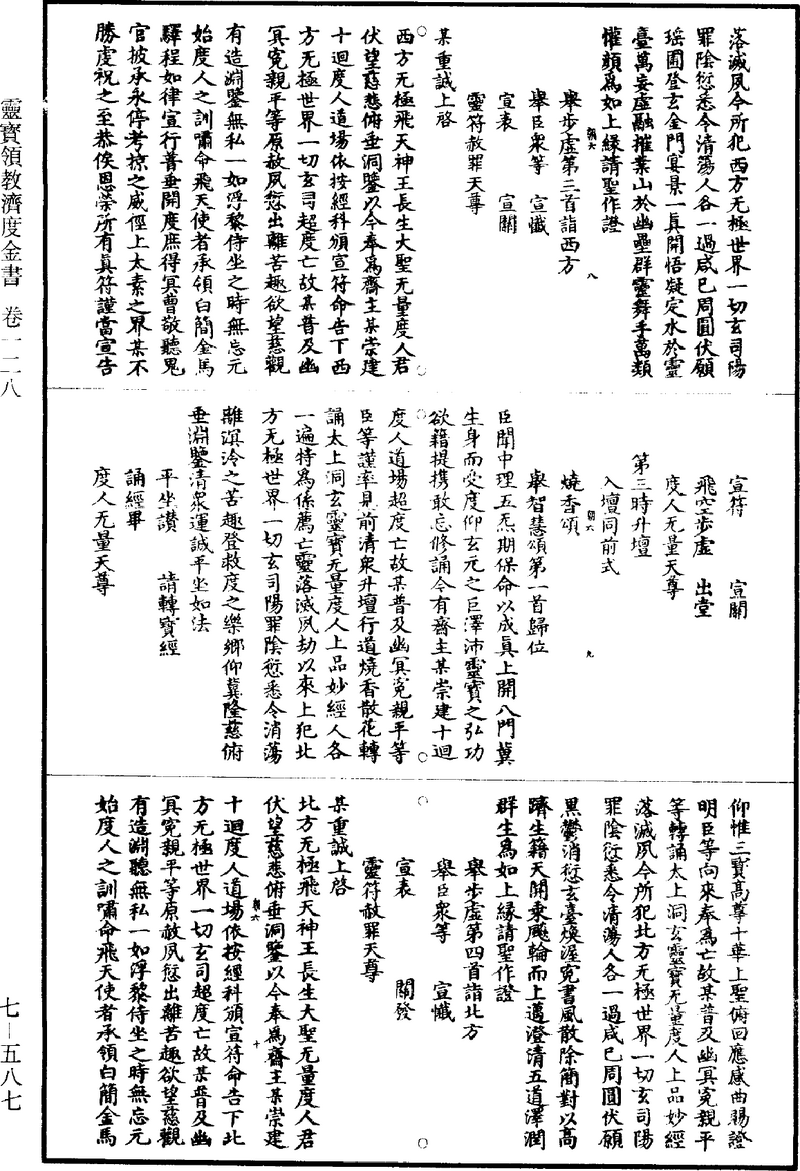 落滅夙今所犯西方无極世界一切玄司陽
罪陰愆悉令清蕩人各一過咸已周圓伏願
瑶圃登玄金門宴景一真開悟凝定水於靈
臺萬妄虛融摧業山於幽壘群靈舞手萬類
懽顔爲如上緣請聖作證
舉步虛第三首詣西方
舉臣衆等 宣懺
宣表 宣關
靈符赦罪天尊
某重誠上啓
西方无極飛天神王長生大聖无量度人君
伏望慈悲俯垂洞鑒以今奉爲齋主某崇建
十迴度人道場依按經科頒宣符命告下西
方无極世界一切玄司超度亡故某普及幽
冥寃親平等原赦夙愆出離苦趣欲望慈觀
有造淵鑒無私一如浮黎侍坐之時無忘元
始度人之訓嘯命飛天使者承領白簡金馬
驛程如律宣行普垂開度庶得冥曹敬聽鬼
官披承永停考掠之威徑上太素之界某不
勝虔祝之至恭俟恩榮所有真符謹當宣告
宣符 宣關
飛空步虛 出堂
度人无量天尊
第三時升壇
入壇同前式
燒香頌
舉智慧頌第一首歸位
臣聞中理五炁期保命以成真上開八門冀
生身而受度仰玄元之巨澤沛靈寶之弘功
欲籍提携敢忘修誦今有齋主某崇建十迴
度人道場超度亡故某普及幽冥寃親平等
臣等謹率見前清衆升壇行道燒香散花轉
誦太上洞玄靈寶无量度人上品妙經人各
一遍特爲係薦亡靈落滅夙劫以來上犯北
方无極世界一切玄司陽罪陰愆悉令消蕩
離溟泠之苦趣登救度之樂鄉仰冀隆慈俯
垂淵鑒清衆運誠平坐如法
平坐讃 請轉寶經
誦經畢
度人无量天尊
仰惟三寳高尊十華上聖俯回應感曲賜證
明臣等向來奉爲亡故某普及幽冥寃親平
等轉誦太上洞玄靈寶无量度人上品妙經
落滅夙今所犯北方无極世界一切玄司陽
罪陰愆悉令清蕩人各一過咸已周圓伏願
黑鬱消愆玄臺煥渥寃書風散除簡對以高
躋生籍天開乘飈輪而上邁澄清五道澤潤
群生爲如上緣請聖作證
舉步虛第四首詣北方
舉臣衆等 宣懺
宣表 關發
靈符赦罪天尊
某重誠上啓
北方无極飛天神王長生大聖无量度人君
伏望慈悲俯垂洞鑒以今奉爲齋主某崇建
十迴度人道場依按經科頒宣符命告下北
方无極世界一切玄司超度亡故某普及幽
冥寃親平等原赦夙愆出離苦趣欲望慈觀
有造淵聽無私一如浮黎侍坐之時無忘元
始度人之訓嘯命飛天使者承領白簡金馬
八
九
十
靈寶領教濟度金書 卷一二八
七—五八七